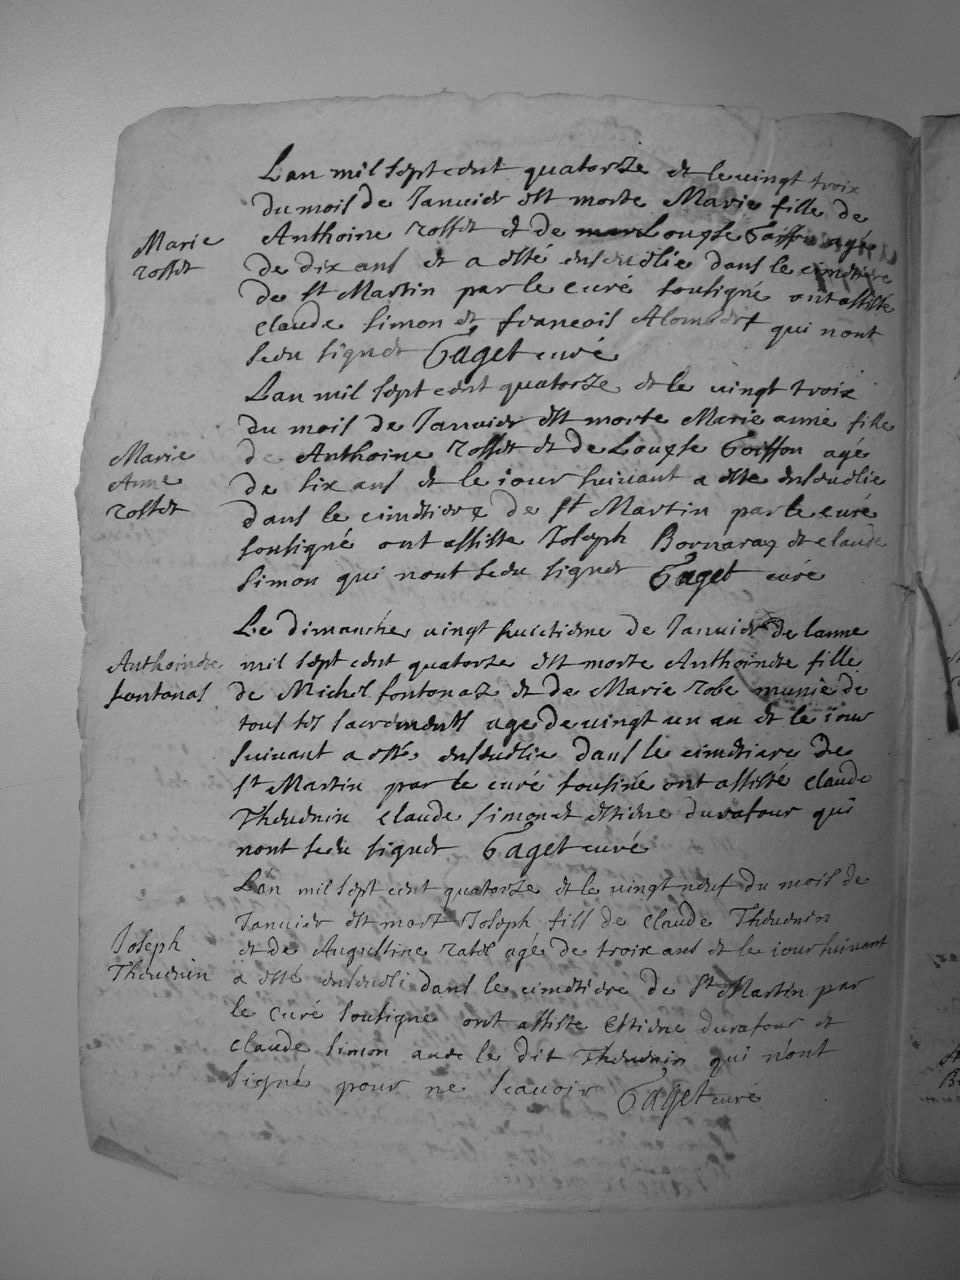 Lan mil sept cent quatorze et le vingt trois
du mois de Janvier est morte Marie fille de
Marie
rosset
Anthoine rosset et de Louyse Goiffon agée
de dix ans et a esté ensevelie dans le cimetiere
de st Martin par le curé sousigné ont assiste
claude simon et francois qui nont
sceu signer Gaget curé
Lan mil sept cent quatorze et le vingt trois
du mois de Janvier est morte Marie anne fille
Marie
Anne
rosset
de Anthoine rosset et de Louyse Goiffon agé
de six ans et le iour suivant a este ensevelie
dans le cimetiere de st Martin par le curé
sousigné ont assiste Joseph Bornaraz et claude
simon qui nont sceu signer Gaget curé
Le dimanche vingt huictieme de Janvier de lanne
Anthoinete
fontanas
mil sept cent quatorse est morte Anthoinete fille
de Michel fontanaz et de Marie robe munie de
tous ses sacrements age de vingt un an et le iour
suivant a esté ensevelie dans le cimetiare de
st Martin par le curé sousiné ont assisté claude
Thevenin claude simon et estiene duratour qui
nont sceu signer Gaget curé
Lan mil sept cent quatorze et le vingt neuf du mois de
Janvier est mort Joseph fils de Claude Thevenin
Joseph
Thevenin
et de Augustine ratel agé de troix ans et le iour suivant
a esté enseveli dans le cimetiere de st Martin par
le curé sousigne ont assiste Estiene duratour et
claude simon avec le dit Thevenin qui n'ont
signé pour ne scavoir Gaget curé